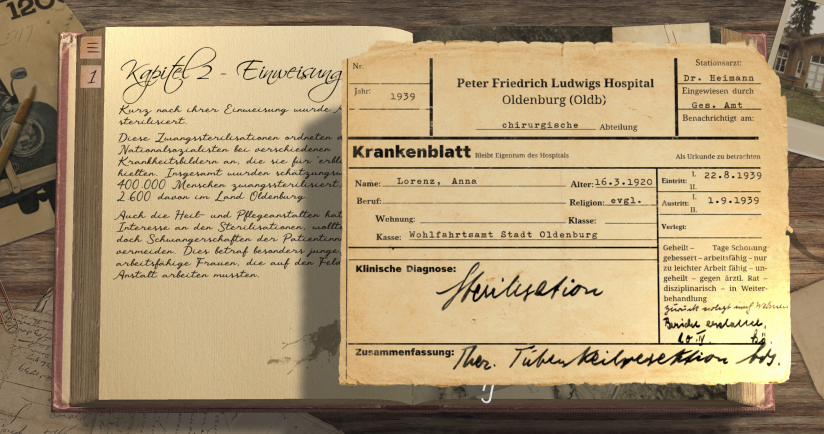 120
1
Kapitel 2 - Einweisung
Kurz nach ihrer Einweisung wurde
sterilisiert.
Diese Zwangssterilisationen ordneten
Nationalsozialisten bei verschiedenen
Krankheitsbildern an, die sie für "erbl
hielten. Insgesamt wurden schätzungs
400.000 Menschen zwangssterilisiert,
2.600 davon im Land Oldenburg.
Auch die Heil- und Pflegeanstalten hat
Interesse an den Sterilisationen, wollt
doch Schwangerschaften der Patientinn
vermeiden. Dies betraf besonders junge,
arbeitsfähige Frauen, die auf den Feld
Anstalt arbeiten mussten.
Nr.
Jahr: 1939
Peter Friedrich Ludwigs Hospital
Oldenburg (Oldb)
chirurgische Abteilung
Stationsarzt:
Dr. Heimann
Eingewiesen durch
Ges. Amt
Benachrichtigt am:
Krankenblatt Bleibt Eigentum des Hospitals
Als Urkunde zu betrachten
Name: Lorenz, Anna Alter: 16.3.1920
Beruf: Religion: evgl.
Wohnung: Klasse:
Kasse: Wohlfahrtsamt Stadt Oldenburg
Eintritt: I. 22.8.1939
II.
Austritt: I. 1.9.1939
II.
Verlegt:
Geheilt – Tage Schonung
gebessert – arbeitsfähig – nur
zu leichter Arbeit fähig – un-
geheilt – gegen ärztl. Rat –
disziplinarisch – in Weiter-
behandlung
zurück
Klinische Diagnose:
Sterilisation
Zusammenfassung: Ther. Tubenkeilresektion bds.